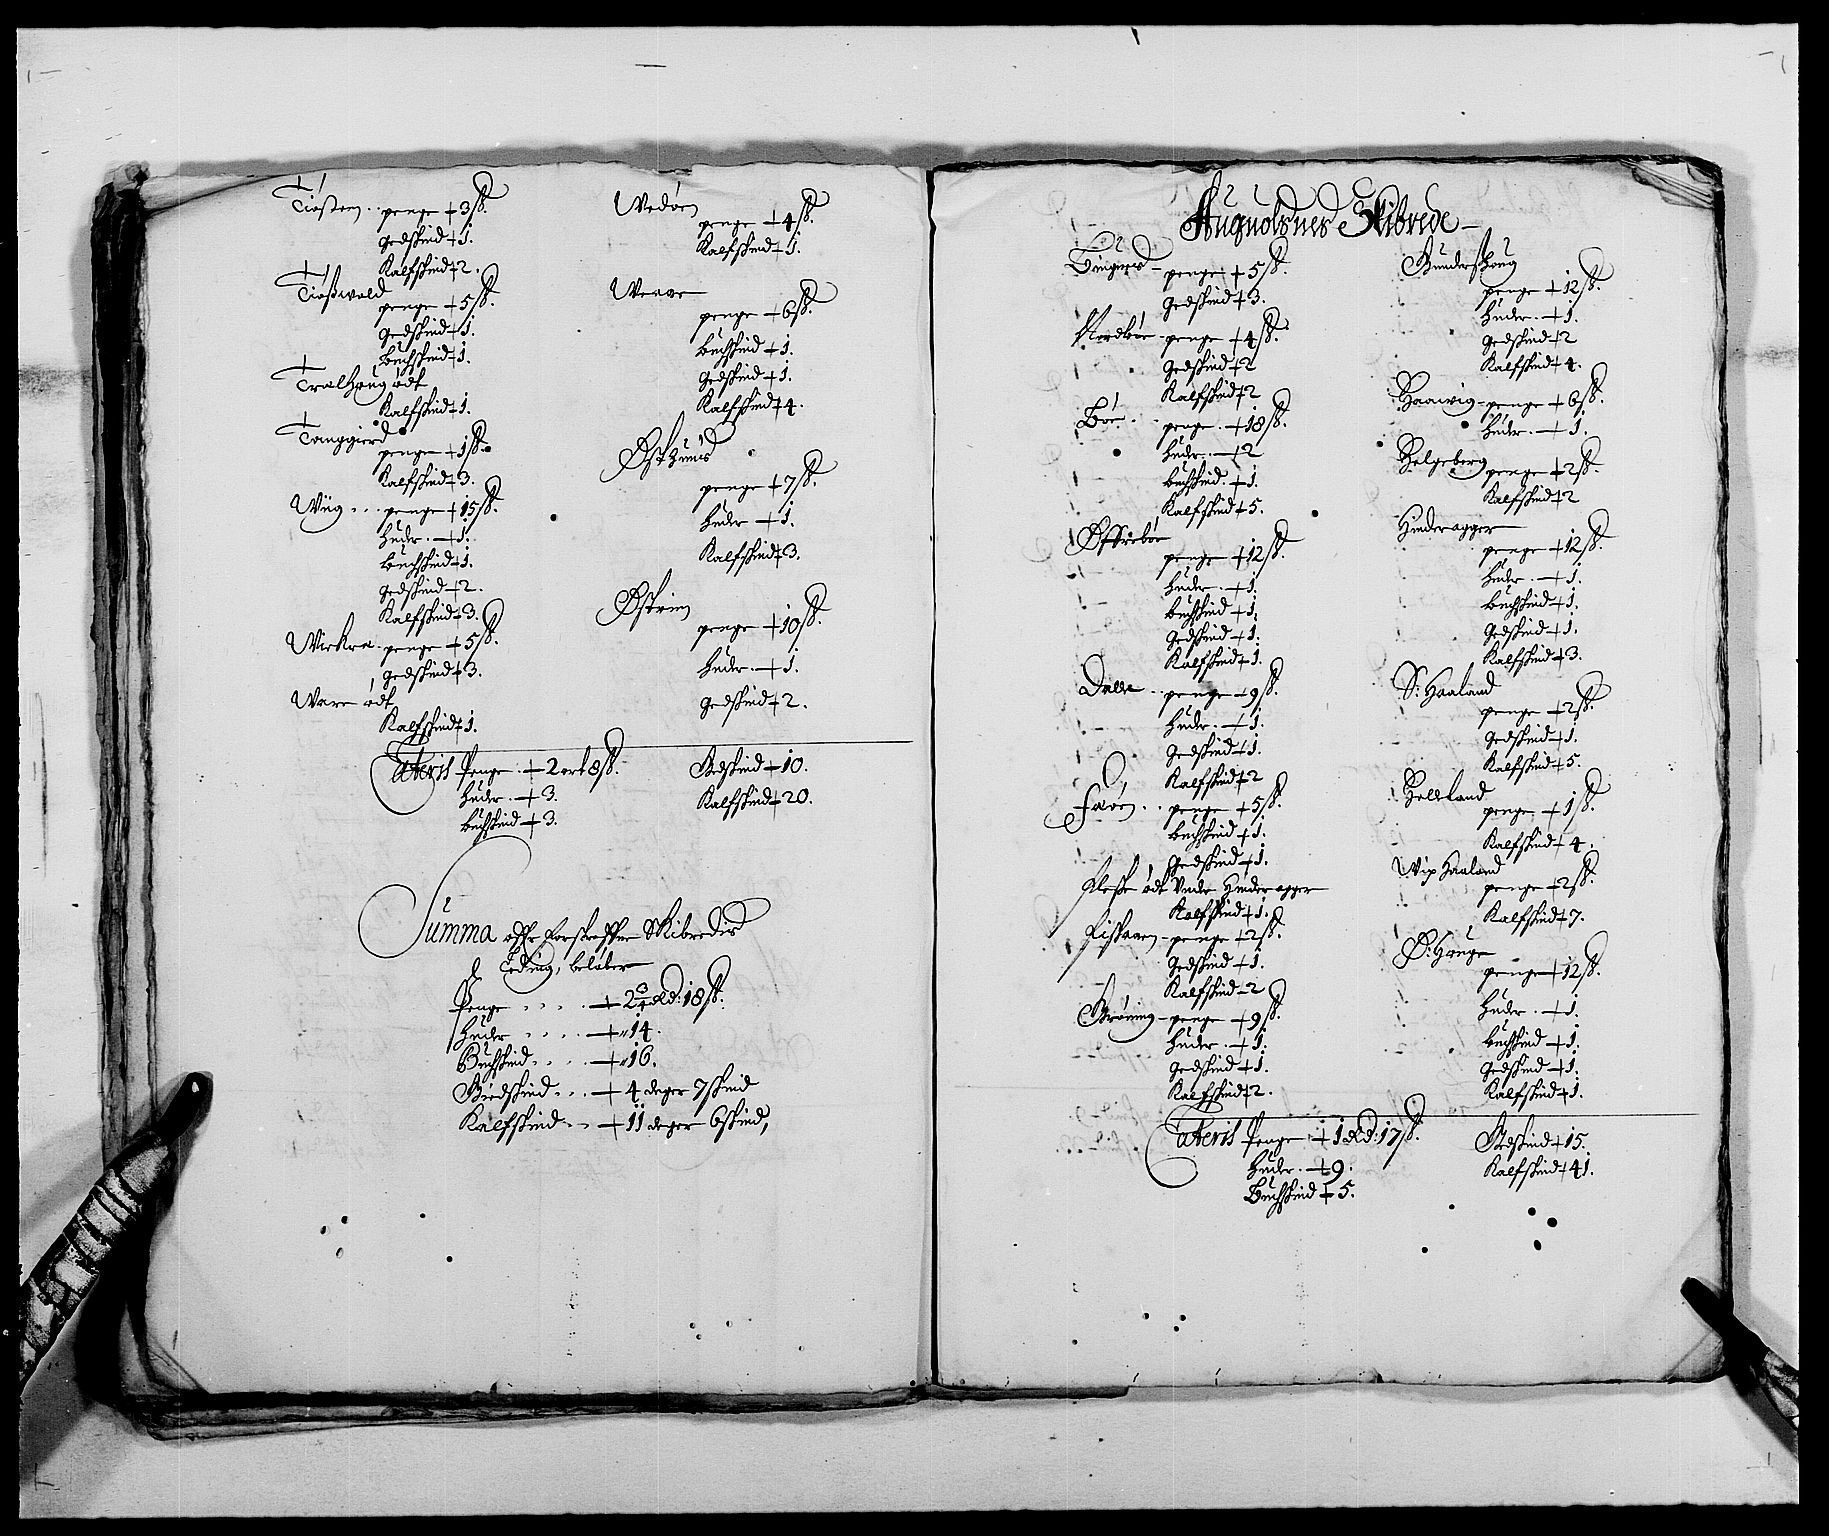 Tiøsten .. penge + 3 ß.
gedskind + 1.
Kalfskind + 2.
Tiøstwold
penge + 5 ß.
Gedskind + 1.
buchskind + 1.
Tralhoug ødt
Kalfskind + 1.
Tanggierd
penge + 1 ß.
Kalfskind + 3.
Wiig ... penge + 15 ß.
huder. + 1.
buchskind + 1.
gedskind + 2.
Kalfskind + 3.
Wiekra. penge + 5 ß.
gedskind + 3.
Ware ødt
Kalfskind + 1.
Wedøen
penge + 4 ß.
Kalfskind + 1.
Weaae
penge + 6 ß.
buchskind + 1.
gedskind + 1.
Kalfskind + 4.
Østhuus
penge + 7 ß.
huder + 1.
Kalfskind + 3.
Østrim
penge + 10 ß.
huder. + 1.
gedskind + 2.
Lateris Penge. + 2 ort 8 ß.
huder. + 3.
buchskind + 3.
Gedskind + 10.
Kalfskind + 20.
Summa offr Forskreffne Skibredis
Leding, beløber
Penge .... + 2 3/4 Rd: 18 ß.
huder .... + 14.
Buchskind .... + 16.
Giedskind ... + 4 deger 7 skind
Kalfskind .. + 11 deger 6 skind,
Auguolsnes Skibrede
penge + 5 ß.
gedskind + 3.
Nordbøe penge + 4 ß.
gedskind + 2
Kalfskind + 2
Bøe .. penge. + 18 ß.
huder. + 2
buchskind. + 1.
Kalfskind + 5.
Øffrebøe
penge + 12 ß.
huder. + 1.
buchskind + 1.
gedskind + 1.
Kalfskind + 1.
Dalle .. penge + 9 ß.
huder. + 1.
gedskind + 1.
Kalfskind + 2
Faøen .. penge + 5 ß.
buchskind + 1.
gedskind + 1.
ødt Under Hinderagger
Kalfskind + 1.
Fiskaaen - penge + 2 ß.
gedskind + 1.
Kalfskind - 2
Grøning - penge + 9 ß.
huder. + 1.
gedskind + 1.
Kalfskind + 2.
Gunderskoug
penge + 12 ß.
huder. + 1.
gedskind + 2
Kalfskind + 4.
Haawig - penge + 6 ß.
huder. + 1.
Helgeberg penge + 2 ß.
Kalfskind + 2
Hinderagger
penge + 12 ß.
huder. + 1.
buchskind + 1.
gedskind + 1.
Kalfskind + 3.
S: Haaland
penge + 2 ß.
gedskind + 1.
Kalfskind + 5.
Helleland
penge + 1 ß.
Kalfskind + 4.
Wix Haaland
penge - 2 ß.
Kalfskind + 7.
Ø: Houge
penge + 12 ß.
huder. + 1.
buchskind + 1.
gedskind + 1.
Kalfskind + 1.
Lateris Penge + 1 Rd: 17 ß.
huder. + 9.
Buchskind + 5.
Gedskind + 15.
Kalfskind + 41.